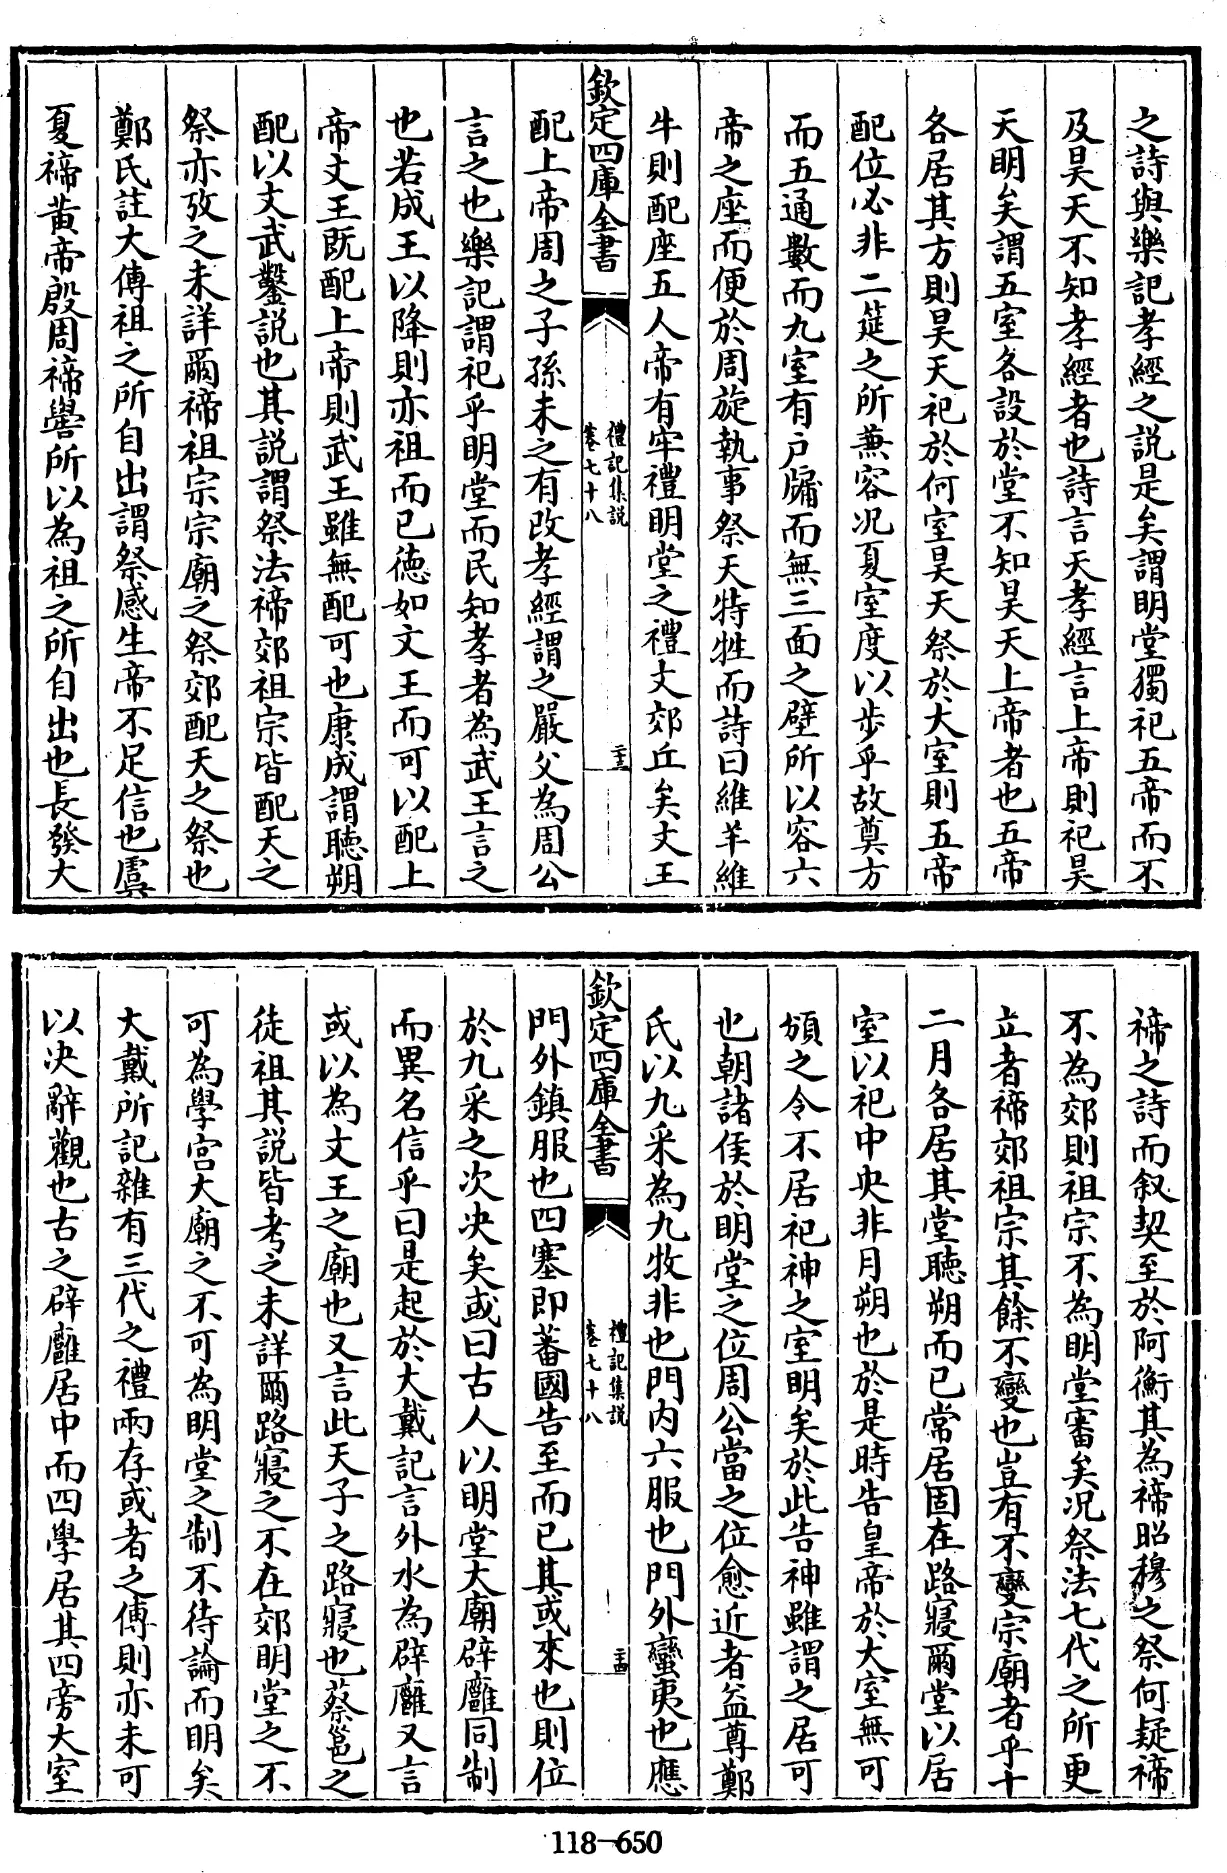 之詩與樂記孝經之說是矣謂明堂獨祀五帝而不
及昊天不知孝經者也詩言天孝經言上帝則祀昊
天明矣謂五室各設於堂不知昊天上帝者也五帝
各居其方則昊天祀於何室昊天祭於大室則五帝
配位必非二筵之所兼容况夏室度以步乎故奠方
而五通數而九室有户牖而無三面之壁所以容六
帝之座而便於周旋執事祭天特牲而詩曰維羊維
牛則配座五人帝有牢禮明堂之禮文郊丘矣文王
欽定四庫全書
禮記集説
卷七十八
二十三
配上帝周之子孫未之有改孝經謂之嚴父為周公
言之也樂記謂祀乎明堂而民知孝者為武王言之
也若成王以降則亦祖而已德如文王而可以配上
帝文王既配上帝則武王雖無配可也康成謂聽朔
配以文武鑿説也其説謂祭法禘郊祖宗皆配天之
祭亦攷之未詳爾禘祖宗宗廟之祭郊配天之祭也
鄭氏註大傳祖之所自出謂祭感生帝不足信也虞
夏禘黄帝殷周禘嚳所以為祖之所自出也長發大
禘之詩而叙契至於阿衡其為禘昭穆之祭何疑禘
不為郊則祖宗不為明堂審矣况祭法七代之所更
立者禘郊祖宗其餘不變也豈有不變宗廟者乎十
二月各居其堂聽朔而已常居固在路寢爾堂以居
室以祀中央非月朔也於是時告皇帝於大室無可
頒之令不居祀神之室明矣於此告神雖謂之居可
也朝諸侯於明堂之位周公當之位愈近者益尊鄭
氏以九采為九牧非也門内六服也門外蠻夷也應
欽定四庫全書
禮記集説
卷七十八
二十四
門外鎮服也四塞即蕃國告至而已其或來也則位
於九采之次决矣或曰古人以明堂大廟辟廱同制
而異名信乎曰是起於大戴記言外水為辟廱又言
或以為文王之廟也又言此天子之路寢也蔡邕之
徒祖其説皆考之未詳爾路寢之不在郊明堂之不
可為學宮大廟之不可為明堂之制不待論而明矣
大戴所記雜有三代之禮兩存或者之傳則亦未可
以决辭觀也古之辟廱居中而四學居其四旁大室
118-650